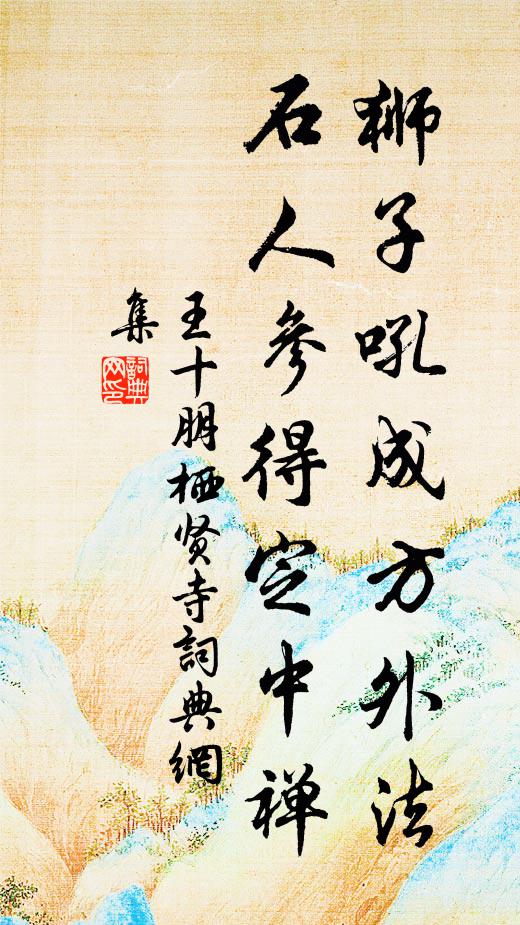 狮子吼成方外法
石人参得定中禅
王十朋栖贤寺詞典網
集
詞典网印